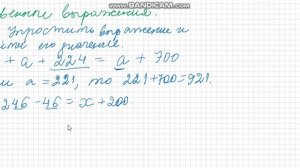 BANDICAM.COM
венные выражения.
Упростить выражение и
йти его значение.
+ a + 224 = a + 700
и a = 221, то 221+700=921.
246 - 46 = x + 200